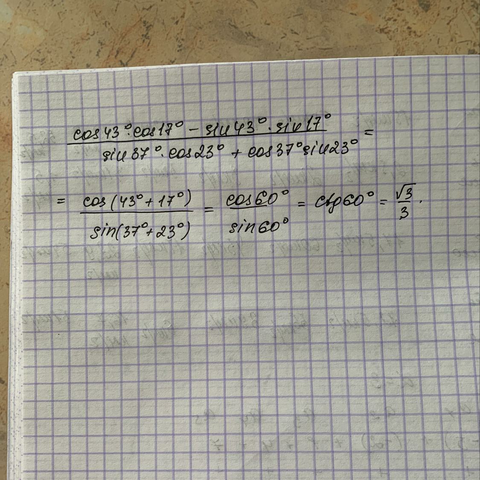 cos43°·cos17° - sin43°·sin17° / sin37°·cos23° + cos37°sin23° =
= cos(43°+17°) / sin(37°+23°) = cos60° / sin60° = ctg60° = √3 / 3.